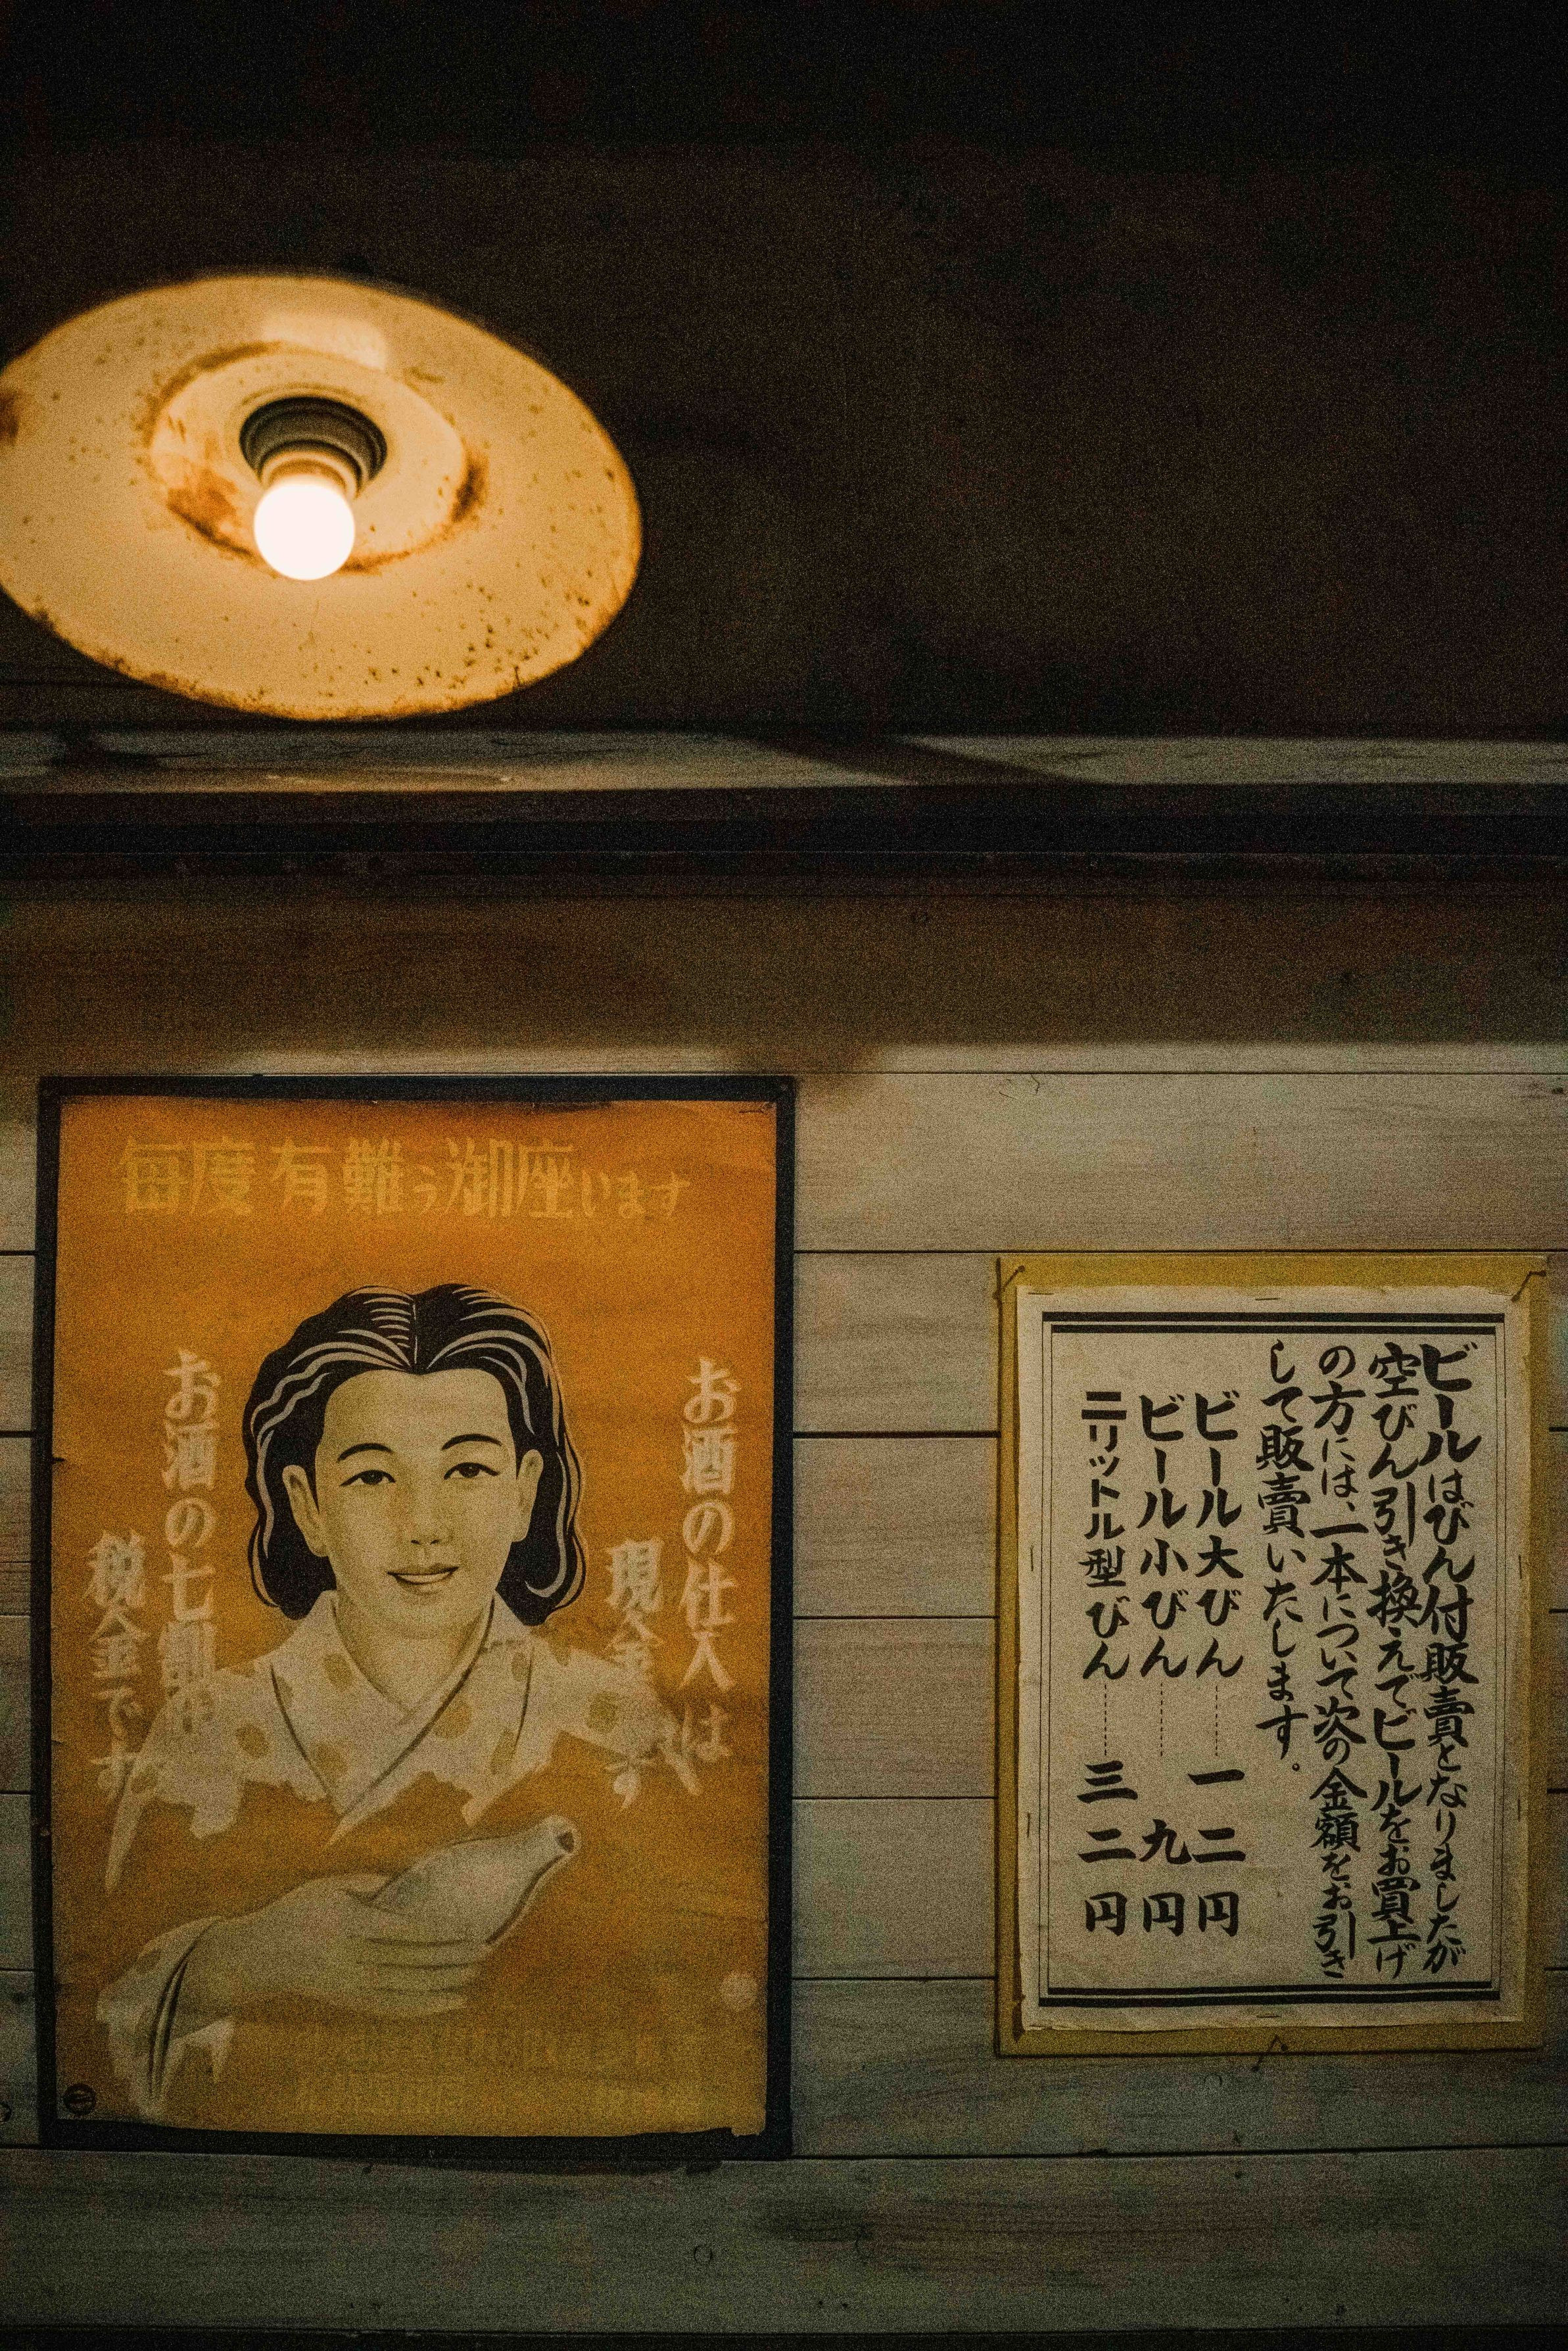 毎度有難う御座います
お酒の仕入は
現金です
お酒の七割は
税金です
ビールはびん付販賣となりましたが
空びん引き換えてビールをお買上げ
の方には、一本について次の金額をお引き
して販賣いたします。
ビール大びん……一二円
ビール小びん……九円
二リットル型びん……三二円